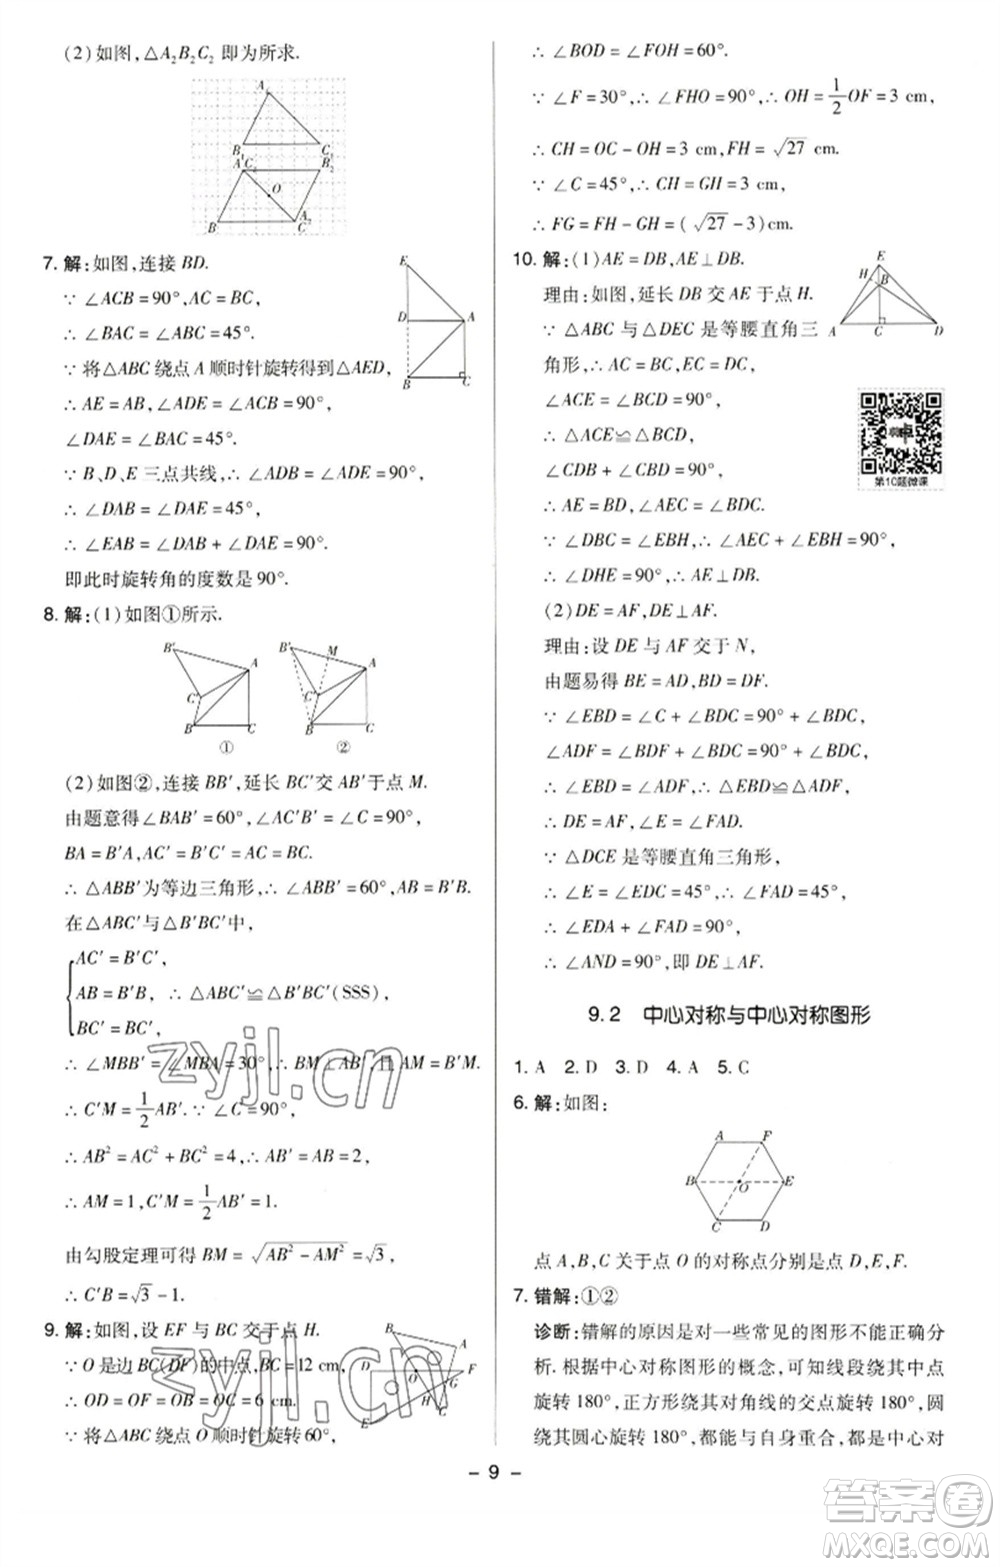 (2)如图,△A₂B₂C₂ 即为所求.
A₁
B₁ C₁
A' C₂ B₂
O
B C A₂
7. 解:如图,连接 BD.
∵ ∠ACB=90°,AC=BC,
∴ ∠BAC=∠ABC=45°.
∵ 将△ABC 绕点 A 顺时针旋转得到△AED,
∴ AE=AB,∠ADE=∠C=90°,
∠DAE=∠BAC=45°.
∵ B、D、E 三点共线,∴ ∠ADB=∠ADE=90°,
∴ ∠DAB=∠DAE=45°,
∴ ∠EAB=∠DAB+∠DAE=90°.
即此时旋转角的度数是 90°.
E
D A
B C
8. 解:(1)如图①所示.
B' A C' B C ①
B' M A C' B C ②
(2)如图②,连接 BB',延长 BC'交 AB'于点 M.
由题意得∠BAB'=60°,∠AC'B'=∠C=90°,
BA=B'A,AC'=B'C'=AC=BC.
∴ △ABB'为等边三角形,∴ ∠ABB'=60°,AB=B'B.
在△ABC'与△B'BC'中,
AC'=B'C',
AB=B'B, ∴ △ABC'≌△B'BC'(SSS),
BC'=BC',
∴ ∠MBB'=∠MBA=30°,∴ BM⊥AB',且 AM=B'M.
∴ C'M=1/2AB'.∵ ∠C=90°,
∴ AB²=AC²+BC²=4,∴ AB'=AB=2,
∴ AM=1,C'M=1/2AB'=1.
由勾股定理可得 BM=√(AB²-AM²)=√3,
∴ C'B=√3-1.
9. 解:如图,设 EF 与 BC 交于点 H.
∵ O 是边 BC(DF)的中点,BC=12 cm,
∴ OD=OF=OB=OC=6 cm.
∵ 将△ABC 绕点 O 顺时针旋转 60°,
B A D O F G H C E
∴ ∠BOD=∠FOH=60°.
∵ ∠F=30°,∴ ∠FHO=90°,∴ OH=1/2OF=3 cm,
∴ CH=OC-OH=3 cm,FH=√27 cm.
∵ ∠C=45°,∴ CH=GH=3 cm,
∴ FG=FH-GH=(√27-3)cm.
10. 解:(1)AE=DB,AE⊥DB.
理由:如图,延长 DB 交 AE 于点 H.
∵ △ABC 与△DEC 是等腰直角三
角形,∴ AC=BC,EC=DC.
∠ACE=∠BCD=90°,
∴ △ACE≌△BCD,
∠CDB+∠CBD=90°,
∴ AE=BD,∠AEC=∠BDC.
∵ ∠DBC=∠EBH,∴ ∠AEC+∠EBH=90°,
∴ ∠DHE=90°,∴ AE⊥DB.
E
H B
A C D
第10题微课
(2)DE=AF,DE⊥AF.
理由:设 DE 与 AF 交于 N,
由题易得 BE=AD,BD=DF.
∵ ∠EBD=∠C+∠BDC=90°+∠BDC,
∠ADF=∠BDF+∠BDC=90°+∠BDC,
∴ ∠EBD=∠ADF,∴ △EBD≌△ADF,
∴ DE=AF,∠E=∠FAD.
∵ △DCE 是等腰直角三角形,
∴ ∠E=∠EDC=45°,∴ ∠FAD=45°,
∴ ∠EDA+∠FAD=90°,
∴ ∠AND=90°,即 DE⊥AF.
9.2 中心对称与中心对称图形
1. A 2. D 3. D 4. A 5. C
6. 解:如图:
A F
B O E
C D
点 A,B,C 关于点 O 的对称点分别是点 D,E,F.
7. 错解:①②
诊断:错解的原因是对一些常见的图形不能正确分
析.根据中心对称图形的概念,可知线段绕其中点
旋转 180°,正方形绕其对角线的交点旋转 180°,圆
绕其圆心旋转 180°,都能与自身重合,都是中心对
- 9 -
zyjl.cn
zyjl.cn
答案卷
MXQE.COM